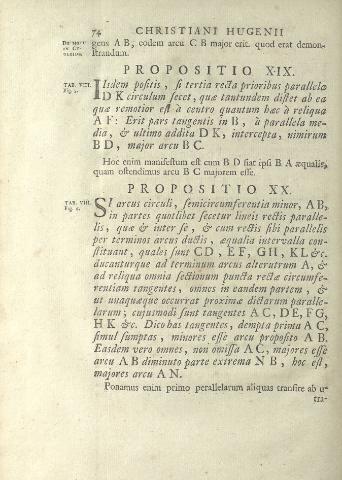 74 CHRISTIANI HUGENII
DE MOTU
IN CY-
CLOIDE.
gens A B, eodem arcu C B major erit. quod erat demon-
strandum.
PROPOSITIO XIX.
TAB. VIII.
Fig. 5.
IIsdem positis, si tertia recta prioribus parallela
DK circulum secet, quæ tantundem distet ab ea
quæ remotior est à centro quantum hæc à reliqua
AF: Erit pars tangentis in B, à parallela me-
dia, & ultimo addita DK, intercepta, nimirum
BD, major arcu BC.
Hoc enim manifestum est cum B D sit ipsi B A æqualis,
quam ostendimus arcu B C majorem esse.
PROPOSITIO XX.
TAB. VIII.
Fig. 6.
SI arcus circuli, semicircumferentia minor, AB,
in partes quotlibet secetur lineis rectis paralle-
lis, quæ & inter se, & cum rectis sibi parallelis
per terminos arcus ductis, æqualia intervalla con-
stituant, quales sunt CD, EF, GH, KL &c.
ducanturque ad terminum arcus alterutrum A, &
ad reliqua omnia sectionum puncta rectæ circumfe-
rentiam tangentes, omnes in eandem partem, &
ut unaquæque occurrat proximæ dictarum paralle-
larum; cujusmodi sunt tangentes AC, DE, FG,
HK &c. Dico has tangentes, dempta prima AC,
simul sumptas, minores esse arcu proposito AB.
Easdem vero omnes, non omissa AC, majores esse
arcu AB diminuto parte extrema NB, hoc est,
majores arcu AN.
Ponamus enim primo perallelarum aliquas transire ab u-
tra-